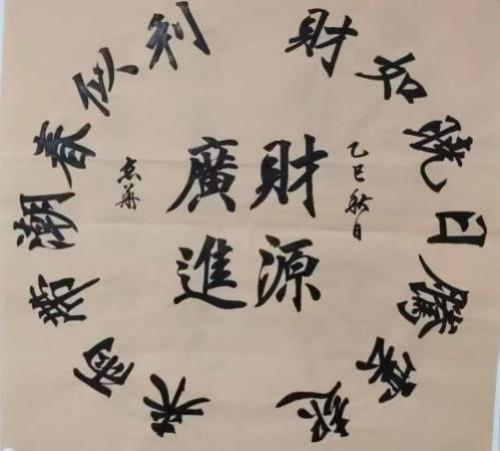 財如曉日騰雲起
利似春潮帶雨來
乙巳秋日
財源
廣進